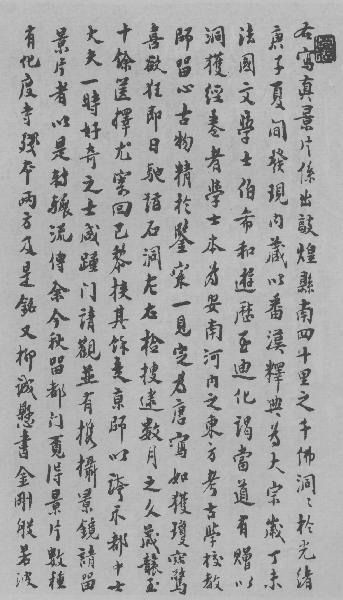 右寫真景片係出敦煌縣南四十里之千佛洞洞於光緒
庚子夏間發現內藏以番漢釋典為大宗歲丁未
法國文學士伯希和遊歷至迪化謁當道有贈以
洞獲經卷者學士本為安南河內之東方考古學校教
師留心古物精於鑒家一見定為唐寫如獲瓊寶驚
喜欲狂即日馳詣石洞左右檢搜迷數月之久蒇
十餘篋擇尤寄回巴黎挾其餘走京師以誇示都中士
大夫一時好奇之士咸踵门請觀並有攜攝景鏡請留
景片者以是轉輾流傳余今秋留都门覓得景片數種
有化度寺殘本兩方及是銘又柳誠懸書金剛般若波